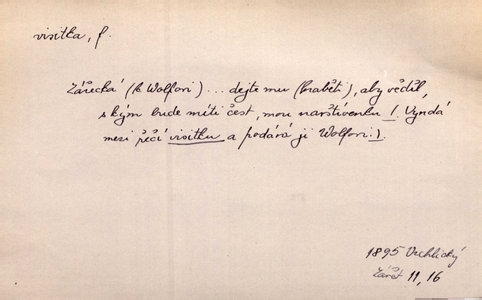 visitka, f.
Zářecká (k Wolfovi) ... dejte mu (hraběti), aby věděl,
s kým bude míti čest, mou navštívenku! (Vyndá
mezi řečí visitku a podává ji Wolfovi.).
1895 Vrchlický
Závěť 11, 16